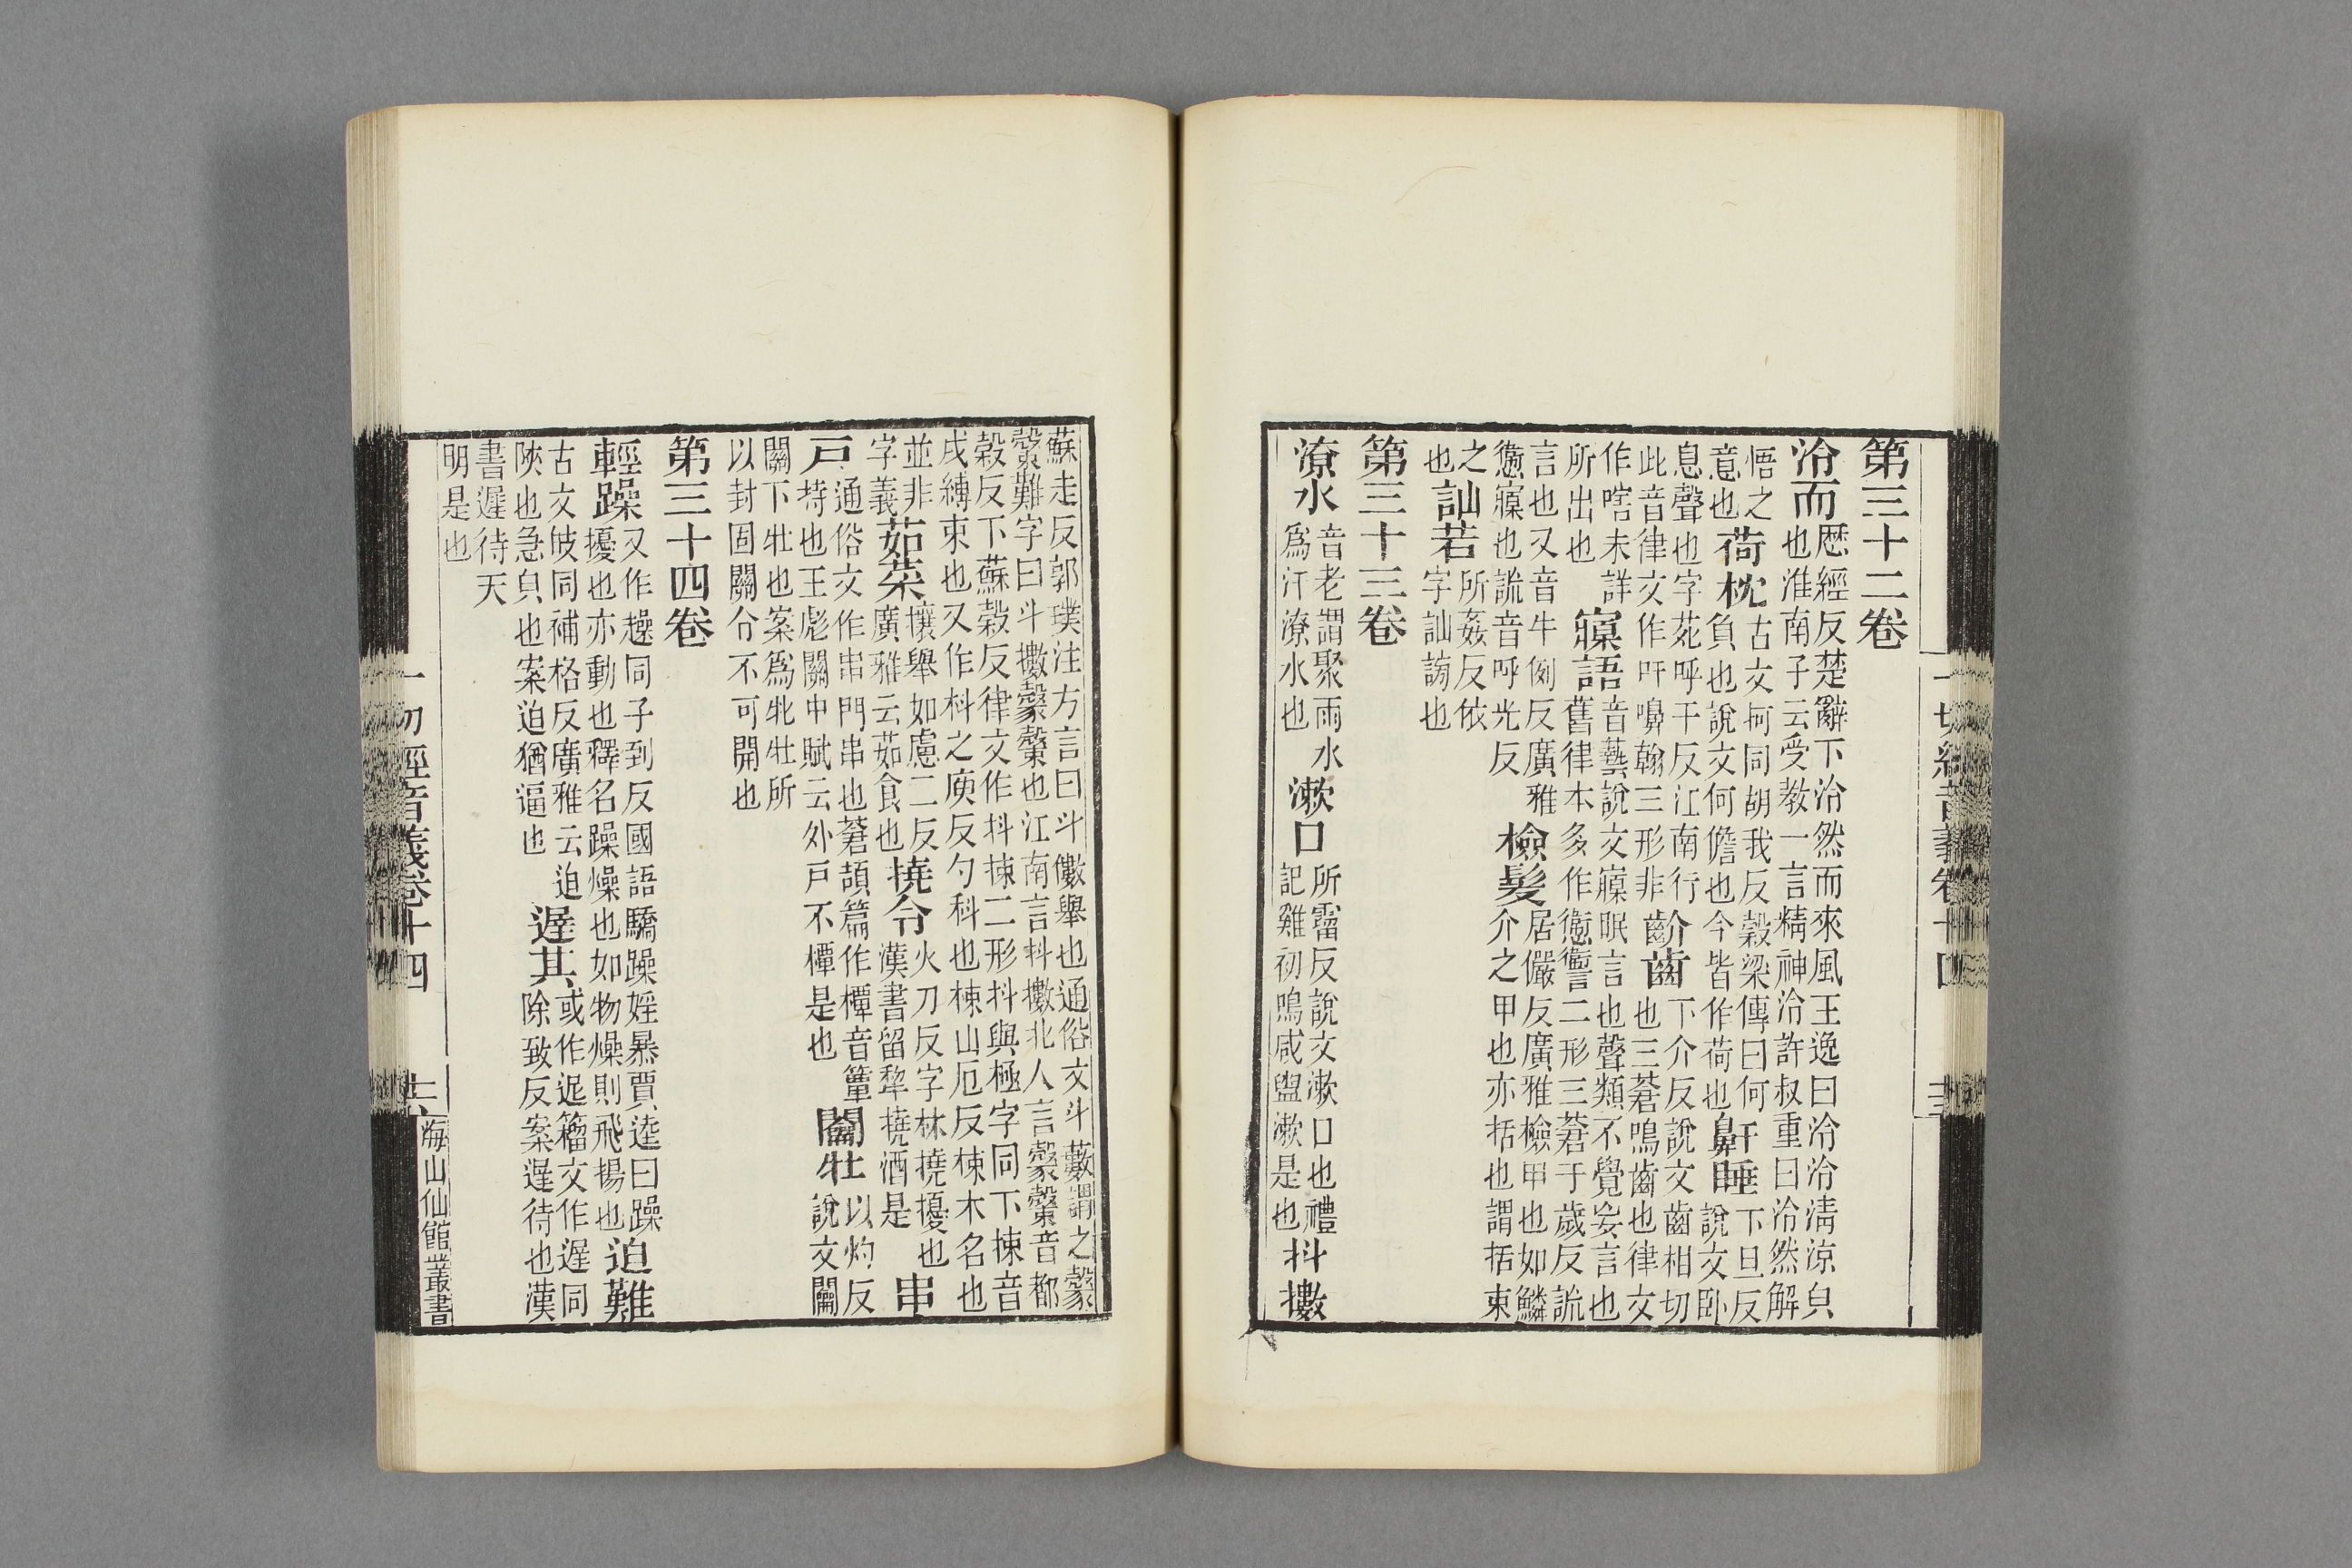 一切經音義卷十四
第三十二卷
泠而
歷經反楚辭下泠然而來風王逸曰泠泠清涼皃
也淮南子云受教一言精神泠許叔重曰泠然解
悟之
意也
荷枕
古文抲同胡我反穀梁傳曰何
負也說文何儋也今皆作荷也
鼾睡
下旦反
說文卧
息聲也字苑呼干反江南行
此音律文作吁嚊翰三形非
齘齒
下介反說文齒相切
也三蒼鳴齒也律文
作㗇未詳
所出也
寱語
音藝說文寱眠言也聲類不覺妄言也
舊律本多作㦣讏二形三蒼于歲反謊
言也又音牛例反廣雅
㦣寱也謊音呼光反
檢髮
居儼反廣雅檢甲也如鱗
介之甲也亦括也謂括束
之
也
訕若
所姦反依
字訕謗也
第三十三卷
潦水
音老謂聚雨水
爲汙潦水也
漱口
所霤反說文漱口也禮
記雞初鳴咸盥漱是也
抖擻
蘇走反郭璞注方言曰斗擻舉也通俗文斗藪謂之㲉
𣫍難字曰斗擻㲉𣫍也江南言抖擻北人言㲉𣫍音都
穀反下蘇穀反律文作抖揀二形抖與極字同下揀音
戍縛束也又作枓之庾反勺科也棟山厄反棟木名也
並非
字義
茹菜
攘舉如慮二反
廣雅云茹食也
撓令
火刀反字林撓擾也
漢書留犂撓酒是
串
戸
通俗文作串門串也蒼頡篇作橝音簟
持也王彪關中賦云外戸不橝是也
𨷲牡
以灼反
說文𨷲
關下牡也案爲牝牡所
以封固關令不可開也
第三十四卷
輕躁
又作趮同子到反國語驕躁婬暴賈逵曰躁
擾也亦動也釋名躁燥也如物燥則飛揚也
迫難
古文敀同補格反廣雅云迫
陝也急皃也案迫猶逼也
遲其
或作𨒈籀文作遲同
除致反案遲待也漢
書遲待天
明是也
一切經音義卷十四
海山仙館叢書